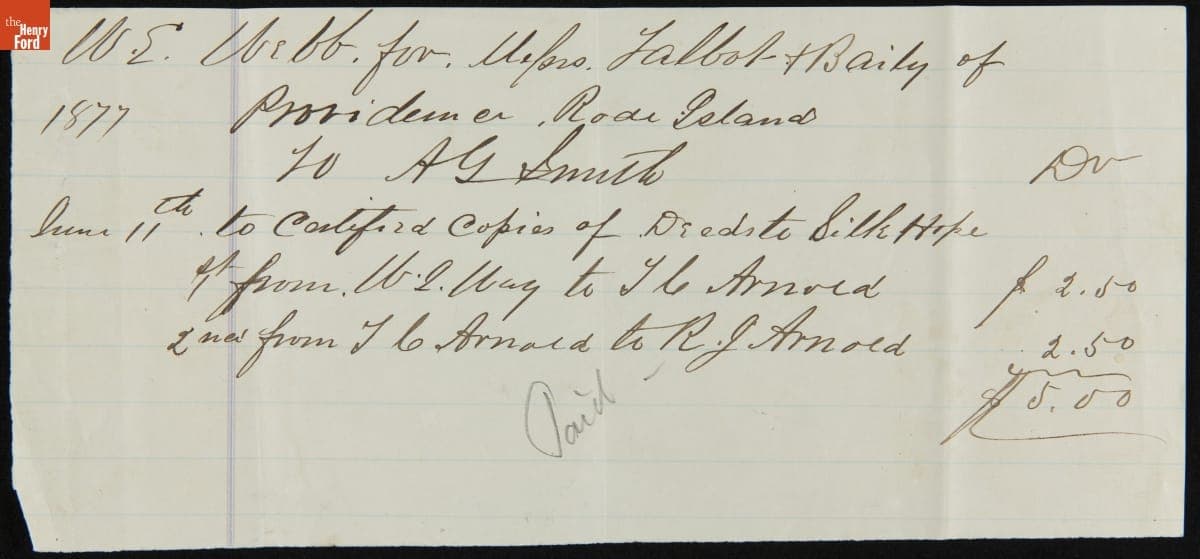 the
Henry
Ford
W. E. Webb. for. Messrs. Talbot & Baily of
1877 Providence, Rode Island
To A G Smith Dr
June 11th to Certified Copies of Deeds to Silk Hope
1st from W. I. Way to T C Arnold $ 2.50
2nd from T C Arnold to R. J Arnold 2.50
$ 5.00
Paid